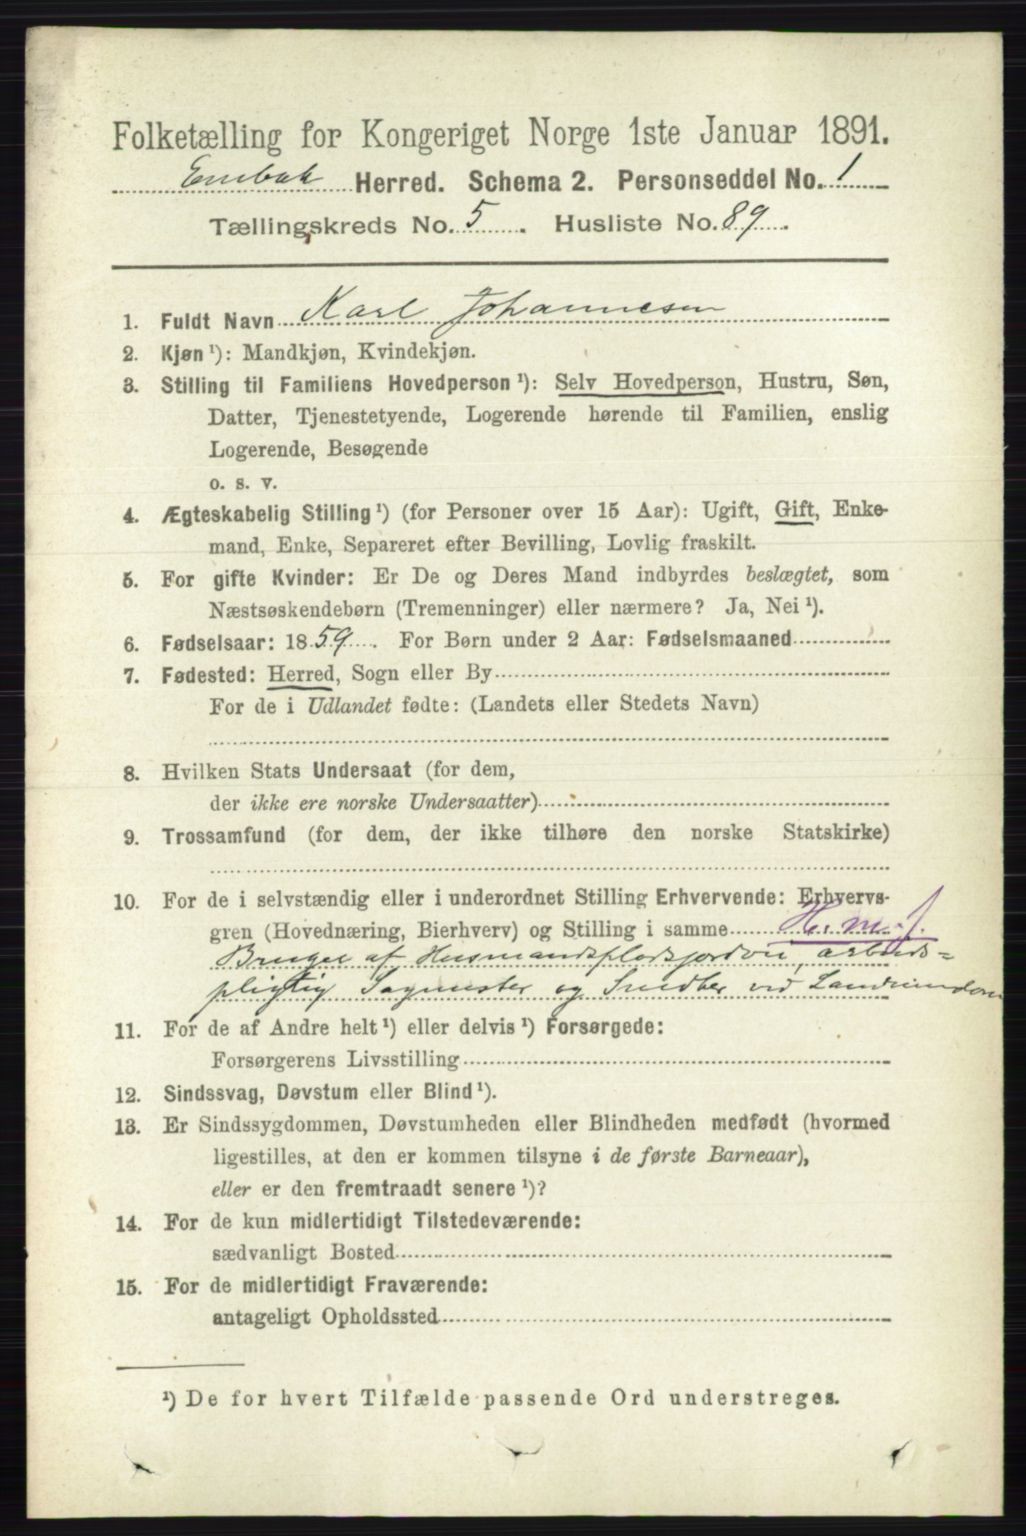 Folketælling for Kongeriget Norge 1ste Januar 1891.
Enebak Herred. Schema 2. Personseddel No. 1
Tællingskreds No. 5. Husliste No. 89.
1. Fuldt Navn Karl Johannesen
2. Kjøn ¹): Mandkjøn, Kvindekjøn.
3. Stilling til Familiens Hovedperson ¹): Selv Hovedperson, Hustru, Søn,
Datter, Tjenestetyende, Logerende hørende til Familien, enslig
Logerende, Besøgende
o. s. v.
4. Ægteskabelig Stilling ¹) (for Personer over 15 Aar): Ugift, Gift, Enke-
mand, Enke, Separeret efter Bevilling, Lovlig fraskilt.
5. For gifte Kvinder: Er De og Deres Mand indbyrdes beslægtet, som
Næstsøskendebørn (Tremenninger) eller nærmere? Ja, Nei ¹).
6. Fødselsaar: 1859. For Børn under 2 Aar: Fødselsmaaned
7. Fødested: Herred, Sogn eller By
For de i Udlandet fødte: (Landets eller Stedets Navn)
8. Hvilken Stats Undersaat (for dem,
der ikke ere norske Undersaatter)
9. Trossamfund (for dem, der ikke tilhøre den norske Statskirke)
10. For de i selvstændig eller i underordnet Stilling Erhvervende: Erhvervs-
gren (Hovednæring, Bierhverv) og Stilling i samme H. m. j.
Bruger af Husmandspladsjorden, arbeids=
pligtig Sagmester og Smed ved
11. For de af Andre helt ¹) eller delvis ¹) Forsørgede:
Forsørgerens Livsstilling
12. Sindssvag, Døvstum eller Blind ¹).
13. Er Sindssygdommen, Døvstumheden eller Blindheden medfødt (hvormed
ligestilles, at den er kommen tilsyne i de første Barneaar),
eller er den fremtraadt senere ¹)?
14. For de kun midlertidigt Tilstedeværende:
sædvanligt Bosted
15. For de midlertidigt Fraværende:
antageligt Opholdssted
¹) De for hvert Tilfælde passende Ord understreges.